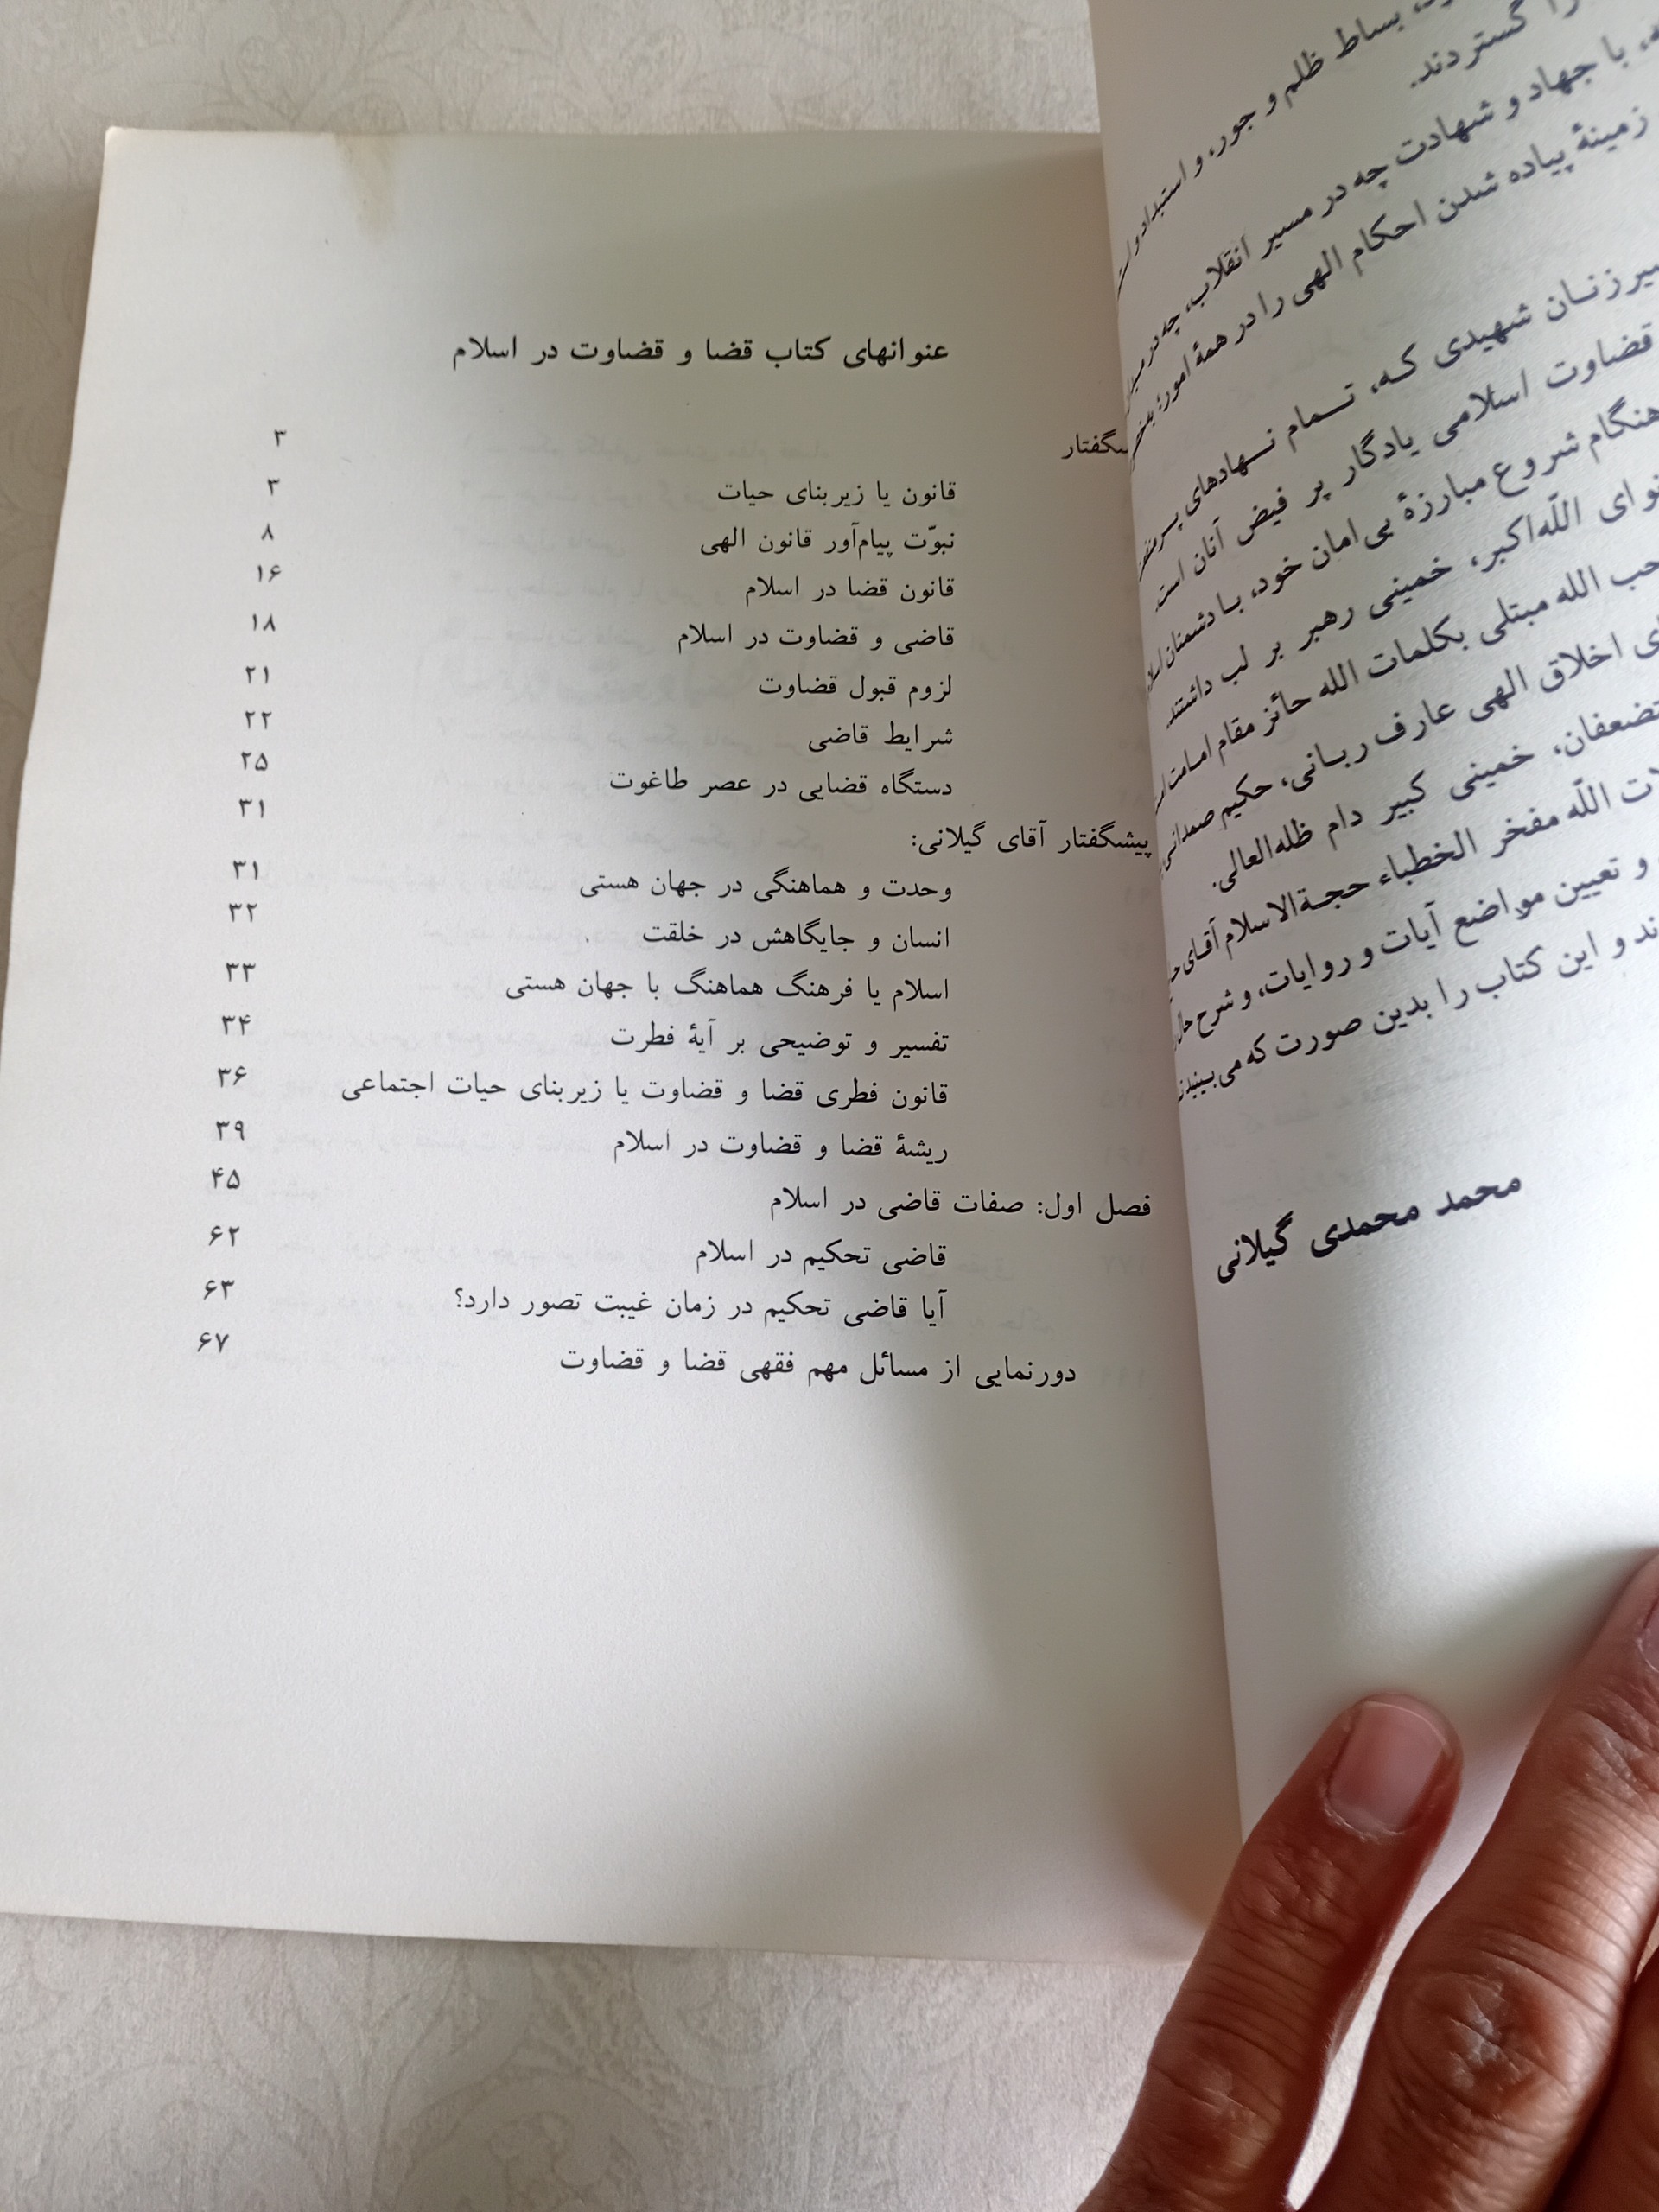 بساط ظلم و جور، و استبداد
گستردند.
با جهاد و شهادت چه در مسیر انقلاب، چه در
زمینهٔ پیاده شدن احکام الهی را در همهٔ امور؛
شهیدی کـه، تـــمام نـــهادهای
قضاوت اسلامی یادگار پر فیض آنان است.
هنگام شروع مبارزهٔ بی‌امان خود، بـا دشمنان
اللّه‌اکبر، خمینی رهبر بر لب داشتند.
الله مبتلی بکلمات الله حائز مقام امـامت
اخلاق الهی عارف ربـانی، حکیم
خمینی کبیر دام ظله‌العالی.
اللّه مفخر الخطباء حجـةالاسلام آقـای
و تعیین مواضع آیات و روایات، و شرح
و این کتاب را بدین صورت که
محمد محمدی گیلانی
عنوانهای کتاب قضا و قضاوت در اسلام
۳
قانون یا زیربنای حیات ۳
نبوّت پیام‌آور قانون الهی ۸
قانون قضا در اسلام ۱۶
قاضی و قضاوت در اسلام ۱۸
لزوم قبول قضاوت ۲۱
شرایط قاضی ۲۲
دستگاه قضایی در عصر طاغوت ۲۵
پیشگفتار آقای گیلانی: ۳۱
وحدت و هماهنگی در جهان هستی ۳۱
انسان و جایگاهش در خلقت ۳۲
اسلام یا فرهنگ هماهنگ با جهان هستی ۳۳
تفسیر و توضیحی بر آیهٔ فطرت ۳۴
قانون فطری قضا و قضاوت یا زیربنای حیات اجتماعی ۳۶
ریشهٔ قضا و قضاوت در اسلام ۳۹
فصل اول: صفات قاضی در اسلام ۴۵
قاضی تحکیم در اسلام ۶۲
آیا قاضی تحکیم در زمان غیبت تصور دارد؟ ۶۳
دورنمایی از مسائل مهم فقهی قضا و قضاوت ۶۷